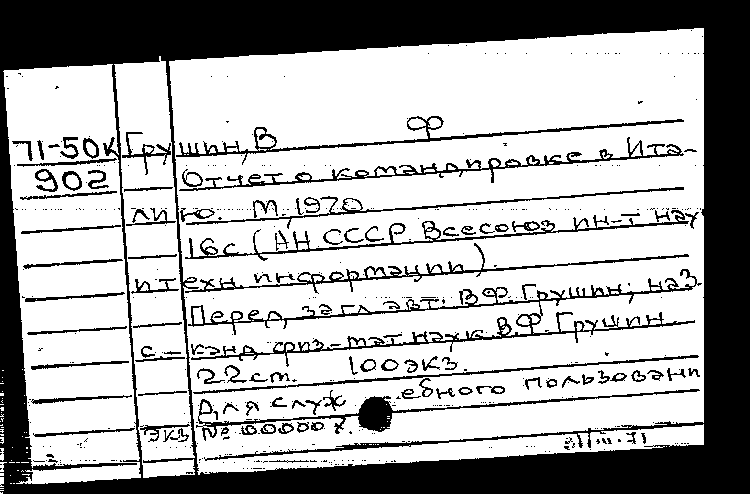 Ф
71-50к Грушин, В
902 Отчет о командировке в Ита-
лию. М, 1970
16с (АН СССР. Всесоюз ин-т науч
и техн. информации).
Перед загл авт: В.Ф. Грушин; на 3
с. - канд физ-мат. наук В.Ф. Грушин
22см. 100экз.
Для служебного пользовани
экз № 00000